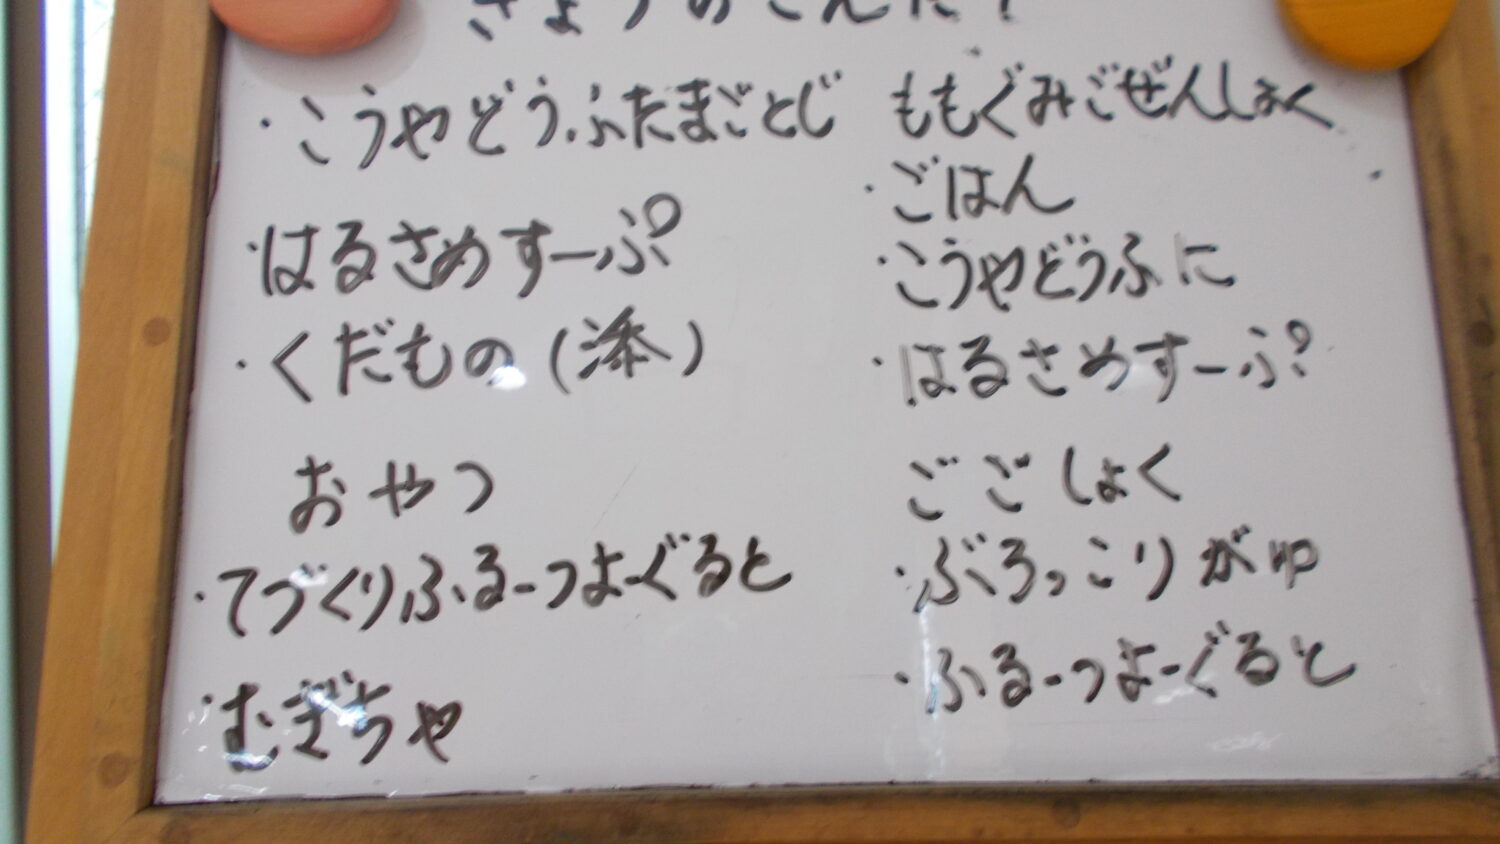 きょうのこんだ？
・こうやどうふたまごとじ
・はるさめすーぷ
・くだもの（添）
おやつ
・てづくりふるーつよーぐると
・むぎちゃ
ももぐみごぜんしょく
・ごはん
・こうやどうふに
・はるさめすーぷ
ごごしょく
・ぶろっこりがゆ
・ふるーつよーぐると